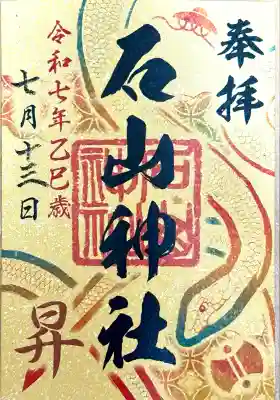 奉拝
石山神社
令和七年乙巳歳
七月十三日
昇
石山神社